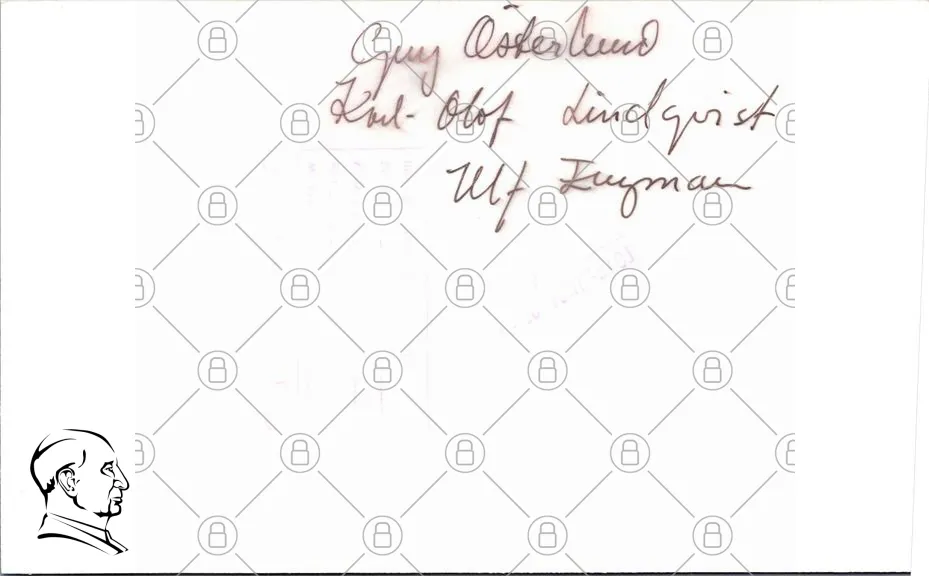 Guy Österlund
Karl-Olof Lindqvist
Ulf Ingman